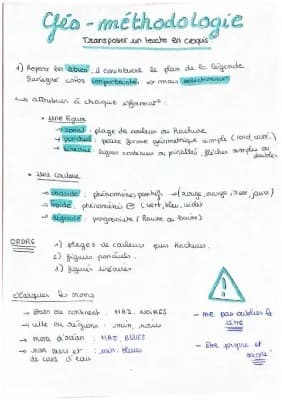 Géo - méthodologie
Transposer un texte en croquis
1) Repérer les idées, il constituent le plan de la légende
Surligner infos importantes → mais sélectionner
↳ attribuer à chaque information :
• une figure
→ zonal : plage de couleur ou hachure
→ ponctuel : petite forme géométrique simple (rond, carré..)
→ linéaire : lignes continues ou pointillés, flèches simples ou doubles
• une couleur
→ chaude : phénomènes positifs → (rouge, orange, rose, jaune)
→ froide : phénomènes ⊖ (vert, bleu, violet)
→ dégradé : progressive (hausse ou baisse)
ORDRE
1) plages de couleurs puis hachures.
2) figures ponctuels.
3) figures linéaires
Marquer les noms
→ états ou continent : MAJ, NOIRES
→ ville ou régions : min, noires
→ noms d'océan : MAJ, BLEUES
→ nom mers et de cours d'eau : min, bleues
- ne pas oublier le titre
- être propre et soigné